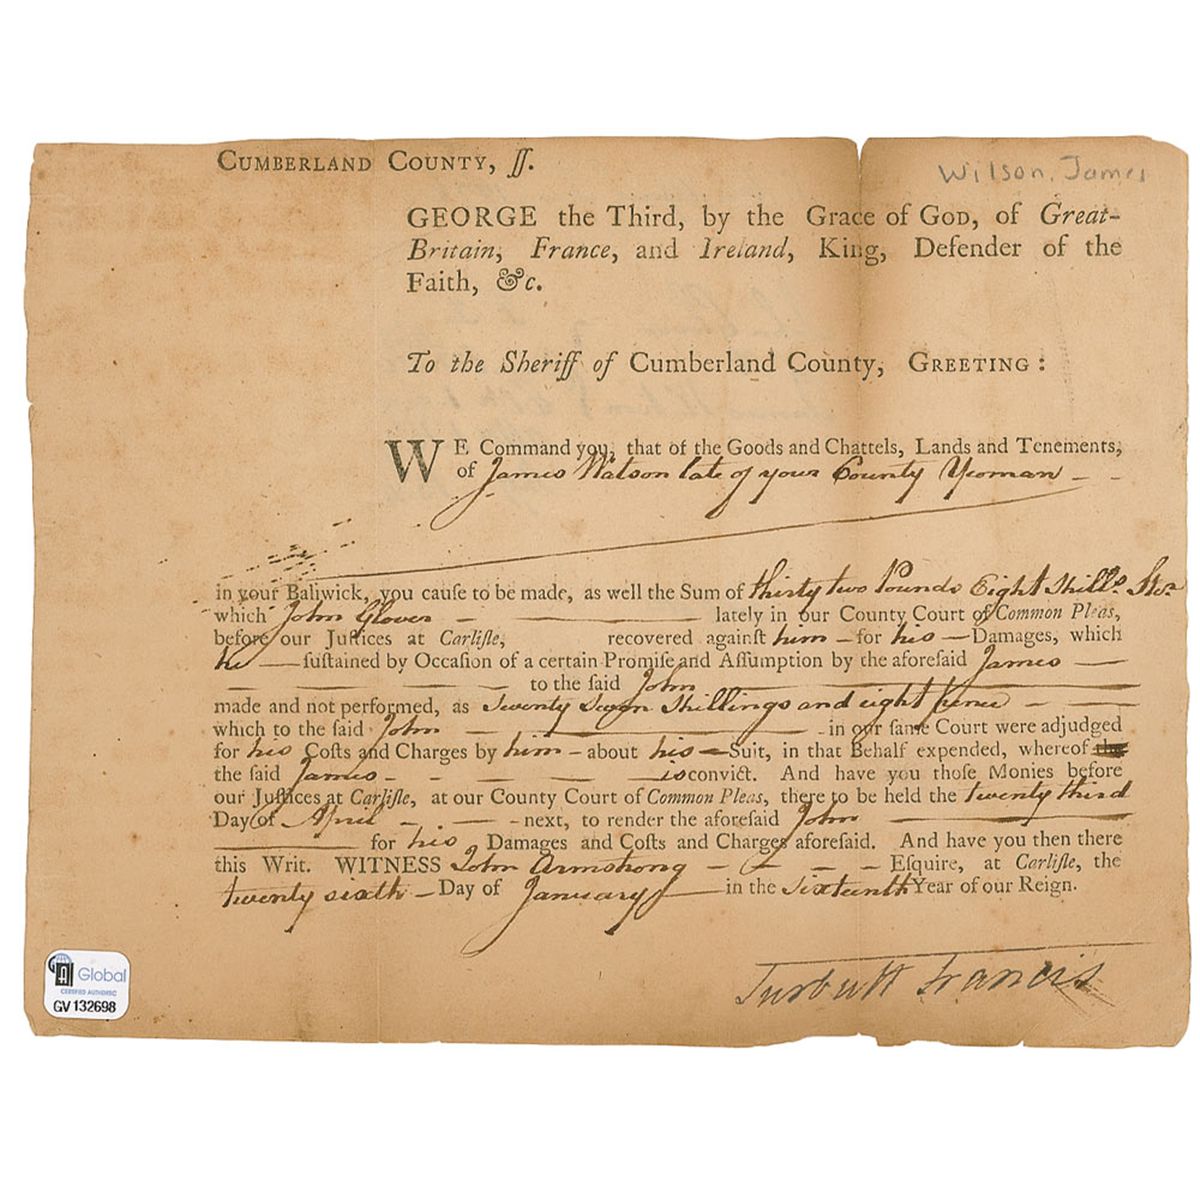 CUMBERLAND COUNTY, ſſ.
Wilson, James
GEORGE the Third, by the Grace of GOD, of Great-
Britain, France, and Ireland, King, Defender of the
Faith, &c.
To the Sheriff of Cumberland County, GREETING:
WE Command you, that of the Goods and Chattels, Lands and Tenements,
of James Watson late of your County Yeoman
in your Baliwick, you cause to be made, as well the Sum of thirty two Pounds Eight Shills.
which John Glover lately in our County Court of Common Pleas,
before our Juſtices at Carliſle, recovered againſt him for his Damages, which
he ſuſtained by Occaſion of a certain Promiſe and Aſſumption by the aforeſaid James
to the said John
made and not performed, as Twenty Seven Shillings and eight Pence
which to the said John in our ſame Court were adjudged
for his Coſts and Charges by him about his Suit, in that Behalf expended, whereof the
the ſaid James is convict. And have you thoſe Monies before
our Juſtices at Carliſle, at our County Court of Common Pleas, there to be held the twenty third
Day of April next, to render the aforeſaid John
for his Damages and Coſts and Charges aforeſaid. And have you then there
this Writ. WITNESS John Armstrong Eſquire, at Carliſle, the
twenty sixth Day of January in the Sixteenth Year of our Reign.
Turbutt Francis
Global
CERTIFIED AUTHENTIC
GV 132698